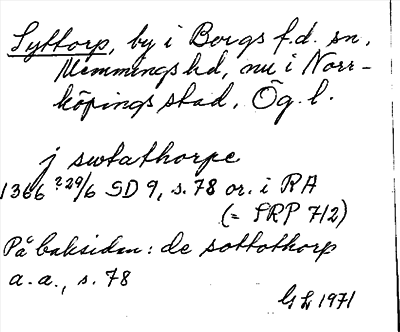 Syttorp, by i Borgs f.d. sn,
Memmings hd, nu i Norr-
köpings stad. Ög. l.
j swtathorpe
1366 ?29/6 SD 9, s. 78 or. i RA
(= SRP 712)
På baksidan: de sottothorp
a.a., s. 78
GL 1971